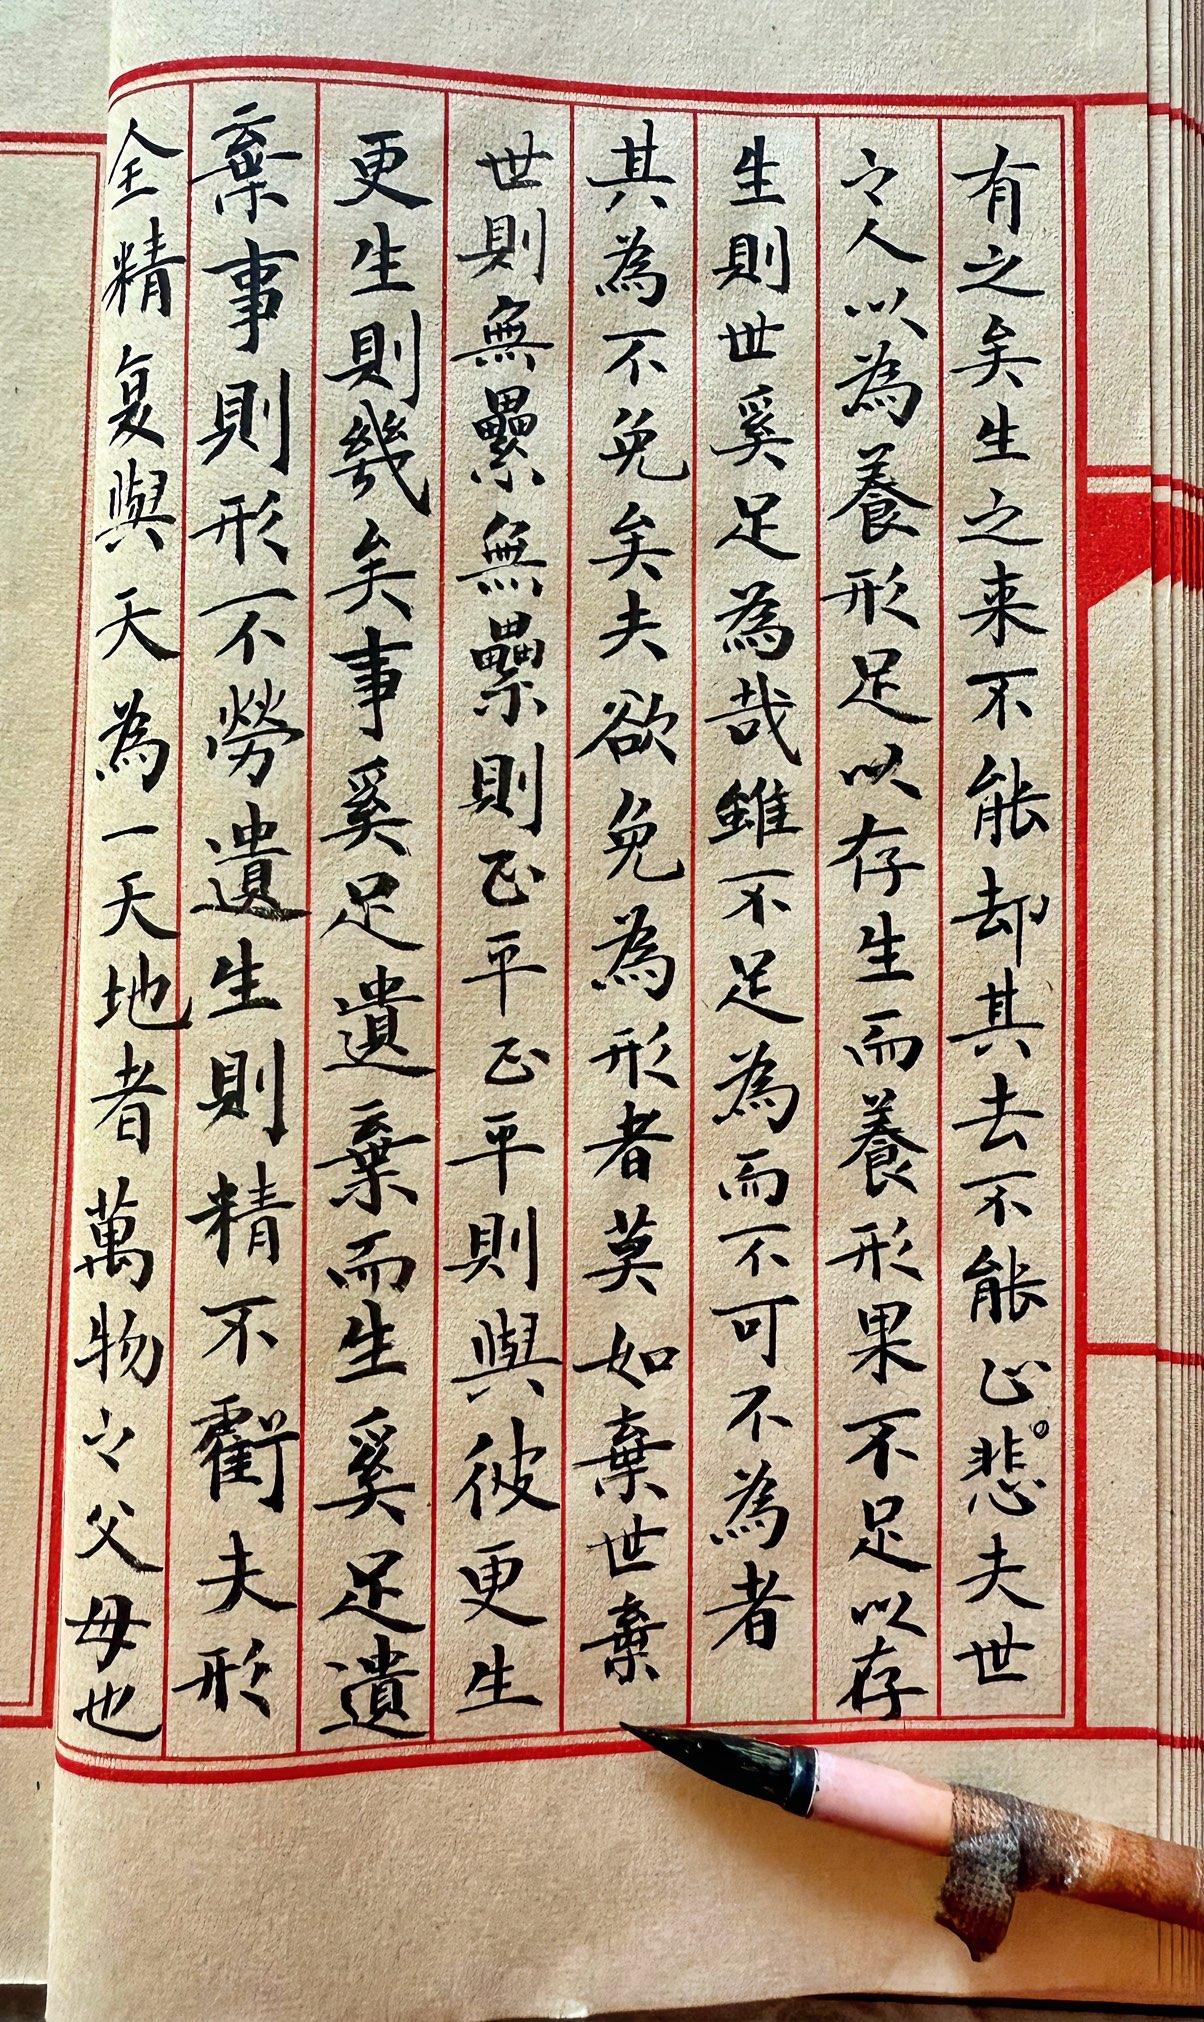 有之矣生之来不能却其去不能止悲。夫世
之人以為養形足以存生而養形果不足以存
生則世奚足為哉雖不足為而不可不為者
其為不免矣夫欲免為形者莫如棄世棄
世則無纍無纍則正平正平則與彼更生
更生則幾矣事奚足遺棄而生奚足遺
棄事則形不勞遺生則精不虧夫形
全精复與天為一天地者萬物之父母也